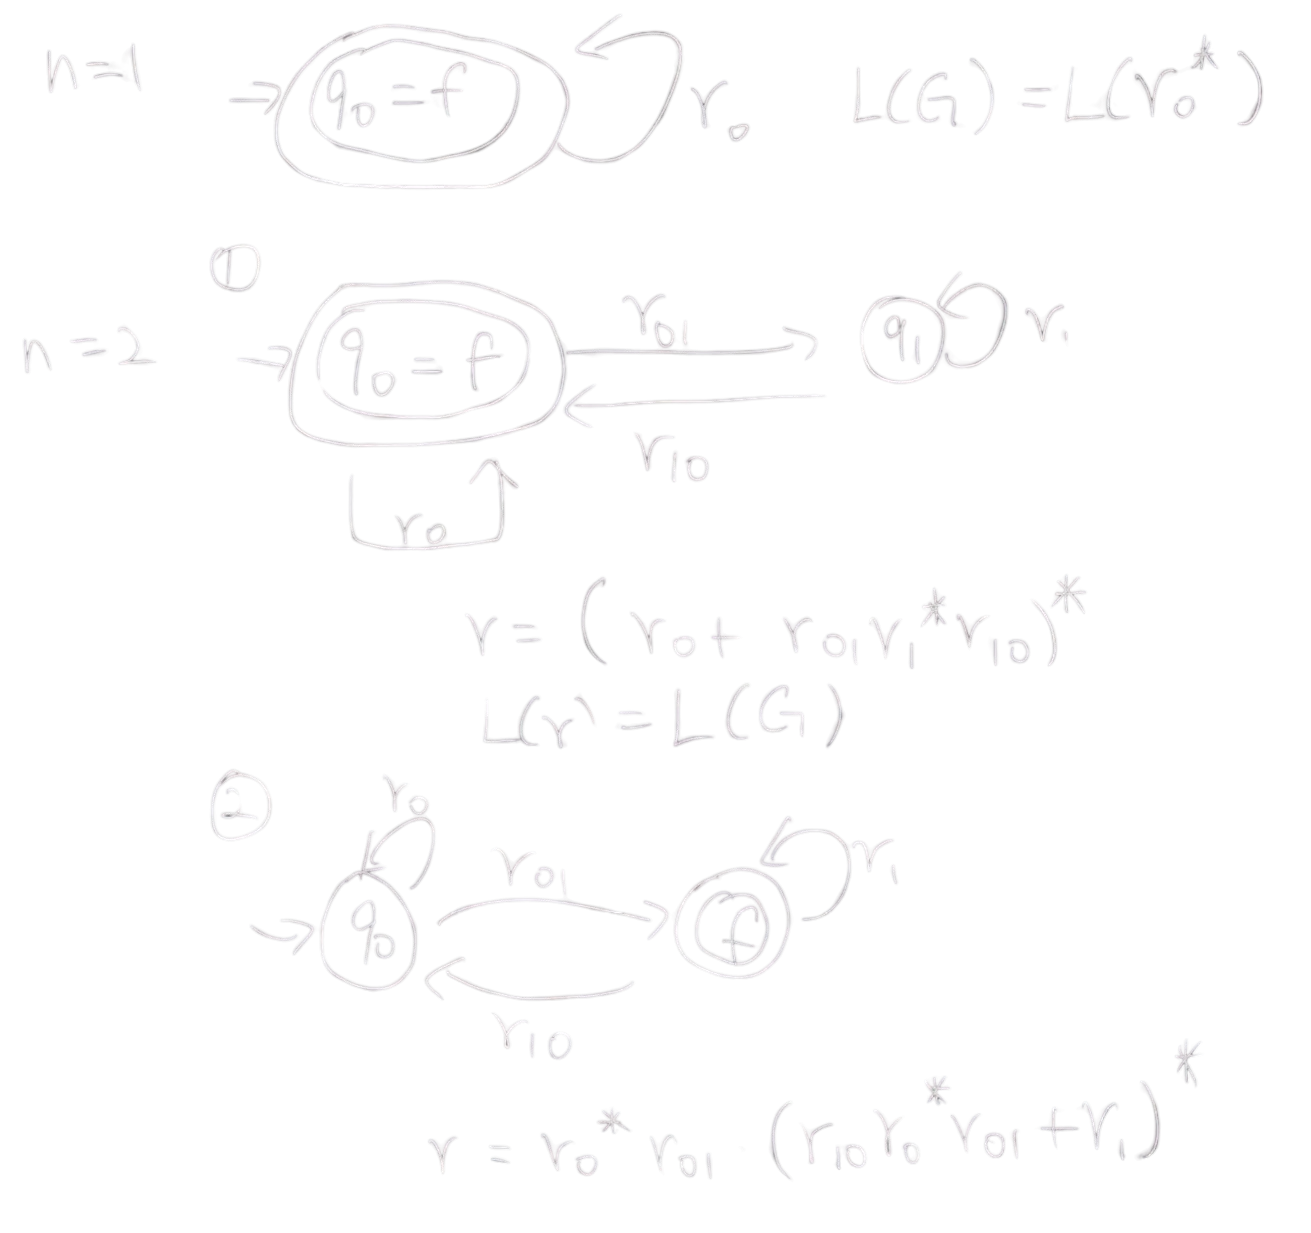 n=1
→ q₀ = f
r₀
L(G) = L(r₀*)
①
n=2
q₀ = f
r₀₁
q₁
r₁
r₁₀
r₀
r = (r₀ + r₀₁r₁*r₁₀)*
L(r) = L(G)
②
r₀
r₀₁
r₁
q₀
f
r₁₀
r = r₀* r₀₁ · (r₁₀r₀*r₀₁ + r₁)*